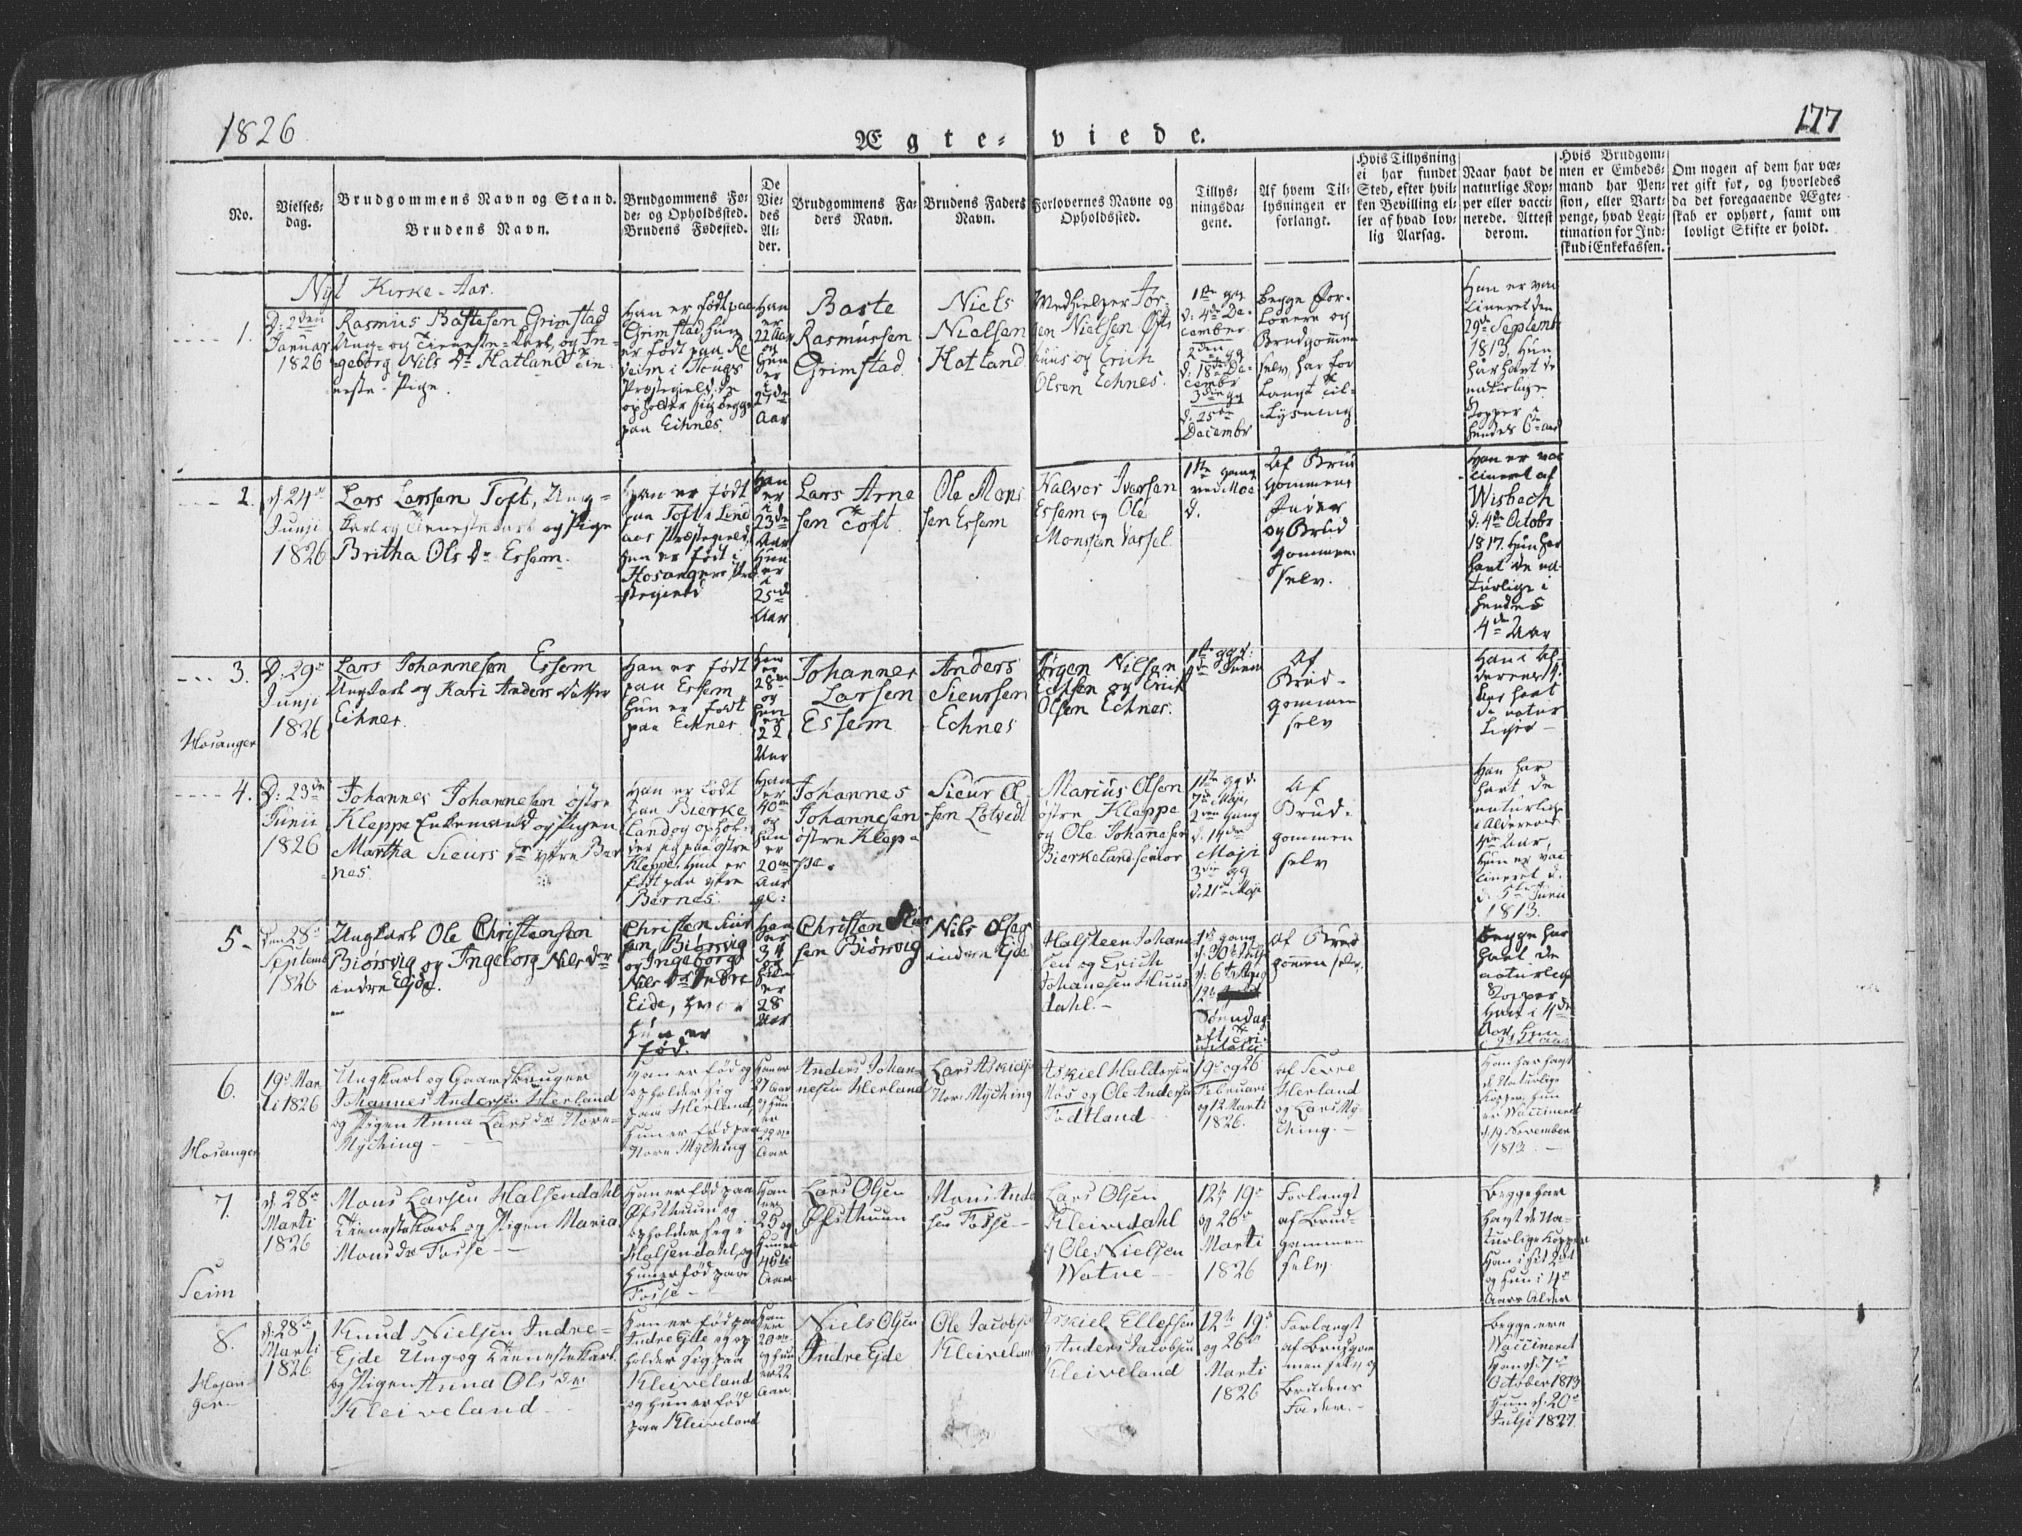 1826
Ægte-viede.
177
No.
Vielses-
dag.
Brudgommens Navn og Stand.
Brudens Navn.
Brudgommens Fø-
de- og Opholdssted.
Brudens Fødested.
De
Vie-
des
Al-
der.
Brudgommens Fa-
ders Navn.
Brudens Faders
Navn.
Forlovernes Navne og
Opholdssted.
Tillys-
ningsda-
gene.
Af hvem Til-
lysningen er
forlangt.
Hvis Tillysning
ei har fundet
Sted, efter hvil-
ken Bevilling el-
ler af hvad lov-
lig Aarsag.
Naar havt de
naturlige Kop-
per eller vacci-
nerede. Attest
derom.
Hvis Brudgom-
men er Embeds-
mand har Pen-
sion, eller Vart-
penge, hvad Legi-
timation for Ind-
skud i Enkekassen.
Om nogen af dem har væ-
ret gift før, og hvorledes
da det foregaaende Ægte-
skab er ophørt, samt om
lovligt Skifte er holdt.
Nyt Kirke-Aar.
1.
D: 2den
Januar
1826
Rasmus Bastesen Grimstad
Ung- og Tieneste-Karl, og In-
geborg Nils Dr Hatland Tie-
neste-Pige.
Han er født paa
Grimstad, hun
er født paa Re
veim i Hougs
Præstegield. de
opholder sig begge
paa Eihnes.
Han
er
22 Aar
og
Hun
er
i
27de
Aar
Baste
Rasmussen
Grimstad.
Niels
Nielsen
Hatland
Medhielper Jør-
gen Nielsen
og Erich
Olsen Echnes.
1ste gg
d: 4de De-
cember
2den gg
d: 18de De-
cembr
3die gg
d: 25de
Decembr
Begge For-
lovere og
Brudgommen
selv, har for
langt Til-
lysning
Han er vac
cineret den
29de Septemb
1813, Hun
har havt de
naturlige
Kopper i
hendes 6te aar
2.
d. 24de
Junji
1826
Lars Larssen Toft, Ung-
karl og Tieneste karl og Pige
Britha Ols Dr Essem.
Han er født
paa Toft i Lind
aas Præstegield
hun er født i
Hosangers Præ
stegield
Han
er
i
23de
Aar
Hun
er
i
25de
Aar
Lars Arne
sen Toft.
Ole Mons
sen Essem
Halvor Iversen
Essem og Ole
Monssen Vassel.
1ste gang
ved
d.
Af Brud
gommens
og Brud
gommen
selv.
Han er vac
cineret af
Wisbech
d: 4de Octobr
1817. Hun har
havt de na
turlige i
hendes
4de Aar
3.
Hosanger
D: 29de
Junji
1826
Lars Johannesen Essem
Ungkarl og Kari Anders Datter
Eihnes.
Han er født
paa Essem
hun er født
paa Echnes
Han
er
28
og
hun
er
22
Aar
Johannes
Larsen
Essem
Anders
Sieursen
Echnes
Jørgen Nilsen
og Erik
Olsen Echnes.
1ste gg d:
Junii
Af
Brud-
gommen
selv
Han i Al
deren
Aar havt
de natur
lige
4.
D: 23de
Junii
1826
Johannes Johannesen østre
Kleppe Enkemand og Pigen
Martha Sieurs Dr ystre Ber
nes
Han er født
paa Bierke
land og ophol-
der sig paa østre
Kleppe. Hun er
født paa ystre
Bernes.
Han
er
40
og
hun
er
20
Aar
gl:
Johannes
Johannesen
østre Klep-
pe.
Sieur Ol-
sen Lotvedt
Marius Olsen
østre Kleppe
og Ole Johannesen
Bierkeland senior
1ste gg d.
7de Maji,
2den Gang
d. 14de
Maji
3die gg
d: 21de Maji
Af
Brud-
gommen
selv
Han har
havt de
naturlige
i Alderens
Aar,
Hun er vac
cineret d.
d. 5te Junii
1813.
5-
Den 28de
Septemb
1826
Ungkarl Ole Christensen
Biørsvig og Ingeborg Nils Dr
indre Ejde.
Christen Siur
sen Biørsvig
og Ingeborg
Nils Dr Indre
Eide, hvor
Hun er
fød.
Han
er
34
og
Hun
er
28
Aar
Christen Siur
sen Biørsvig
Nils Olsen
indre Ejde
Halsteen Johanne
sen og Erich
Johannesen Huus
dahl.-
1ste gang
d: 30te
d: 6te Aug
12te
Søndag
eft Tri-
Af Brud
gommen selv.
Begge har
havt de
naturlige
Kopper
Han i 4de
Aar, Hun
6.
Hosanger
19de Mar
ti 1826
Ungkarl og Gaardbruger
Johannes Andersen Herland
og Pigen Anna Lars Dr Nore
Myching -
Han er fød og
opholder sig
paa Herland,
Hun er fød paa
Nore Myching
Han er
27 Aar
og hun
er
22
Aar
Anders Johan-
nesen Herland
Lars Askiels
Nore Myching
Askiel Haldorsen
Mos og Ole Andersen
Fodtland -
19de og 26
Februari
og 12 Marti
1826.
af Sevre
Herland
og Lars My-
ching. -
Han har havt
de Naturlige
Kopper, Hun
er Waccineret
d. 19 November
1813. -
7.
Seim
d. 28de
Marti
1826
Mons Larsen Halsendahl
Tienestekarl og Pigen Maria
Mons Dr Fosse -
Han er fød paa
Øfsthuun og
opholder seg i
Halsendahl, og
Hun er fød paa
Fosse -
Han
er
25 og
Hun er
46
Aar
Lars Olsen
Øfsthuun
Mons Ande
sen Fosse -
Lars Olsen
Kleivdahl
og Ole Nielsen
Watne -
12te 19de
og 26de
Marti
1826
Forlangt
af Brud-
gommen
selv
Begge har
havt de Na-
turlige Kopper
Han i sit 2det
og Hun i 4de
Aars Alder
8.
Hosan-
ger-
d: 28de
Marti
1826
Knud Nielsen Indre-
Ejde Ung og Tienestekarl
og Pigen Anna Ols Dr
Kleiveland -
Han er fød paa
Indre Ejde og op
holder sig paa
Kleiveland
og Hun er fød
paa Kleiveland
Han
er
20
og hun
er 22
Aar
Niels Olsen
Indre Ejde
Ole Jacobsen
Kleiveland
Askiel Ellefsen
og Anders Jacobsen
Kleiveland
12te 19de
og 26de
Marti
1826
Forlangt
af Brudgom
men selv og
Brudens
Fader. -
Begge ere
Waccineret
Han d: 7de
October 1813
Hun d: 20de
Julji 1827